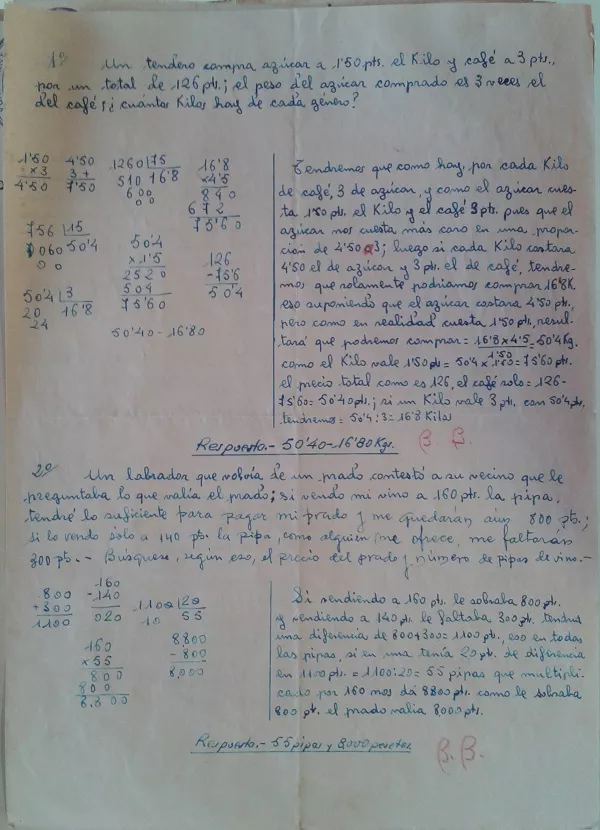 1º Un tendero compra azúcar a 1'50 pts. el Kilo y café a 3 pts.,
por un total de 126 pts.; el peso del azúcar comprado es 3 veces el
del café; ¿cuántos Kilos hay de cada género?
1'50
x3
4'50
4'50
3+
7'50
1260 |75
510 16'8
600
00
16'8
x4'5
840
672
75'60
756 |15
0060 50'4
00
50'4
x1'5
2520
504
75'60
126
-75'6
50'4
50'4 |3
20 16'8
24
50'40-16'80
Tendremos que como hay, por cada Kilo
de café, 3 de azúcar, y como el azúcar cues-
ta 1'50 pts. el Kilo y el café 3 pts. pues que el
azúcar nos cuesta más caro en una propor-
ción de 4'50 a 3; luego si cada Kilo costara
4'50 el de azúcar y 3 pts. el de café, tendre-
mos que solamente podríamos comprar 16'8K.
eso suponiendo que el azúcar costara 4'50 pts.,
pero como en realidad cuesta 1'50 pts., resul-
tará que podremos comprar = 16'8 x 4'5 = 50'4 Kg.
1'50
como el Kilo vale 1'50 pts = 50'4 x 1'50 = 75'60 pts.
el precio total como es 126, el café solo = 126-
75'60 = 50'40 pts.; si un Kilo vale 3 pts. con 50'4 pts.
tendremos = 50'4 : 3 = 16'8 Kilos
Respuesta.- 50'40-16'80 Kgs.
B. B.
2º Un labrador que volvía de un prado contestó a su vecino que le
preguntaba lo que valía el prado; si vendo mi vino a 160 pts. la pipa,
tendré lo suficiente para pagar mi prado y me quedarán aún 800 pts.;
si lo vendo sólo a 140 pts. la pipa, como alguien me ofrece, me faltarán
300 pts.- Búsquese, según eso, el precio del prado y número de pipas de vino.-
800
+300
1100
160
-140
020
1100 |20
10 55
160
x55
800
800
8.800
8800
-800
8,000
Si vendiendo a 160 pts. le sobraba 800 pts.
y vendiendo a 140 pts. le faltaba 300 pts. tendrá
una diferencia de 800+300=1100 pts., eso en todas
las pipas, si en una tenía 20 pts. de diferencia
en 1100 pts. = 1100:20= 55 pipas que multipli-
cado por 160 nos dá 8800 pts. como le sobraba
800 pts. el prado valía 8000 pts.
Respuesta.- 55 pipas y 8000 pesetas
B. B.